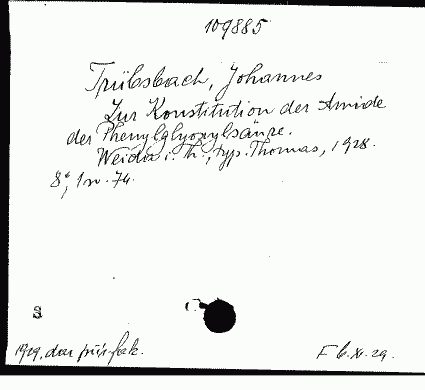 109885
Trübsbach, Johannes
Zur Konstitution der Amide
der Phenylglyoxylsäure.
Weida i. Th., typ. Thomas, 1928.
8°, 74.
1929, dar
F 6.XI.29.